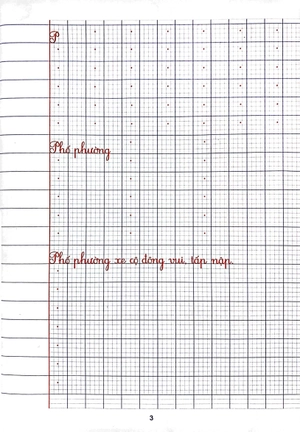 P
Phố phường
Phố phường xe cộ đông vui, tấp nập.
3